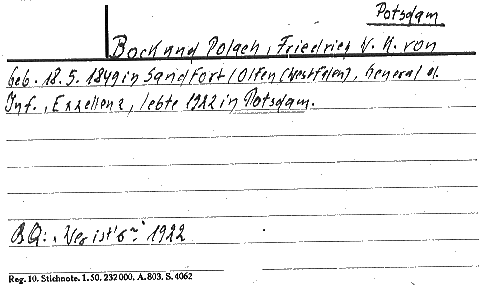 Potsdam
Bock und Polach, Friedrich W. K. von
geb. 18.5.1849 in Sandfort/Olfen (Westfalen), General d.
Inf., Exzellenz, lebte 1922 in Potsdam.
BQ: "Wer ist's" 1922
Reg. 10. Stichnote. 1. 50. 232 000. A. 803. S. 4062